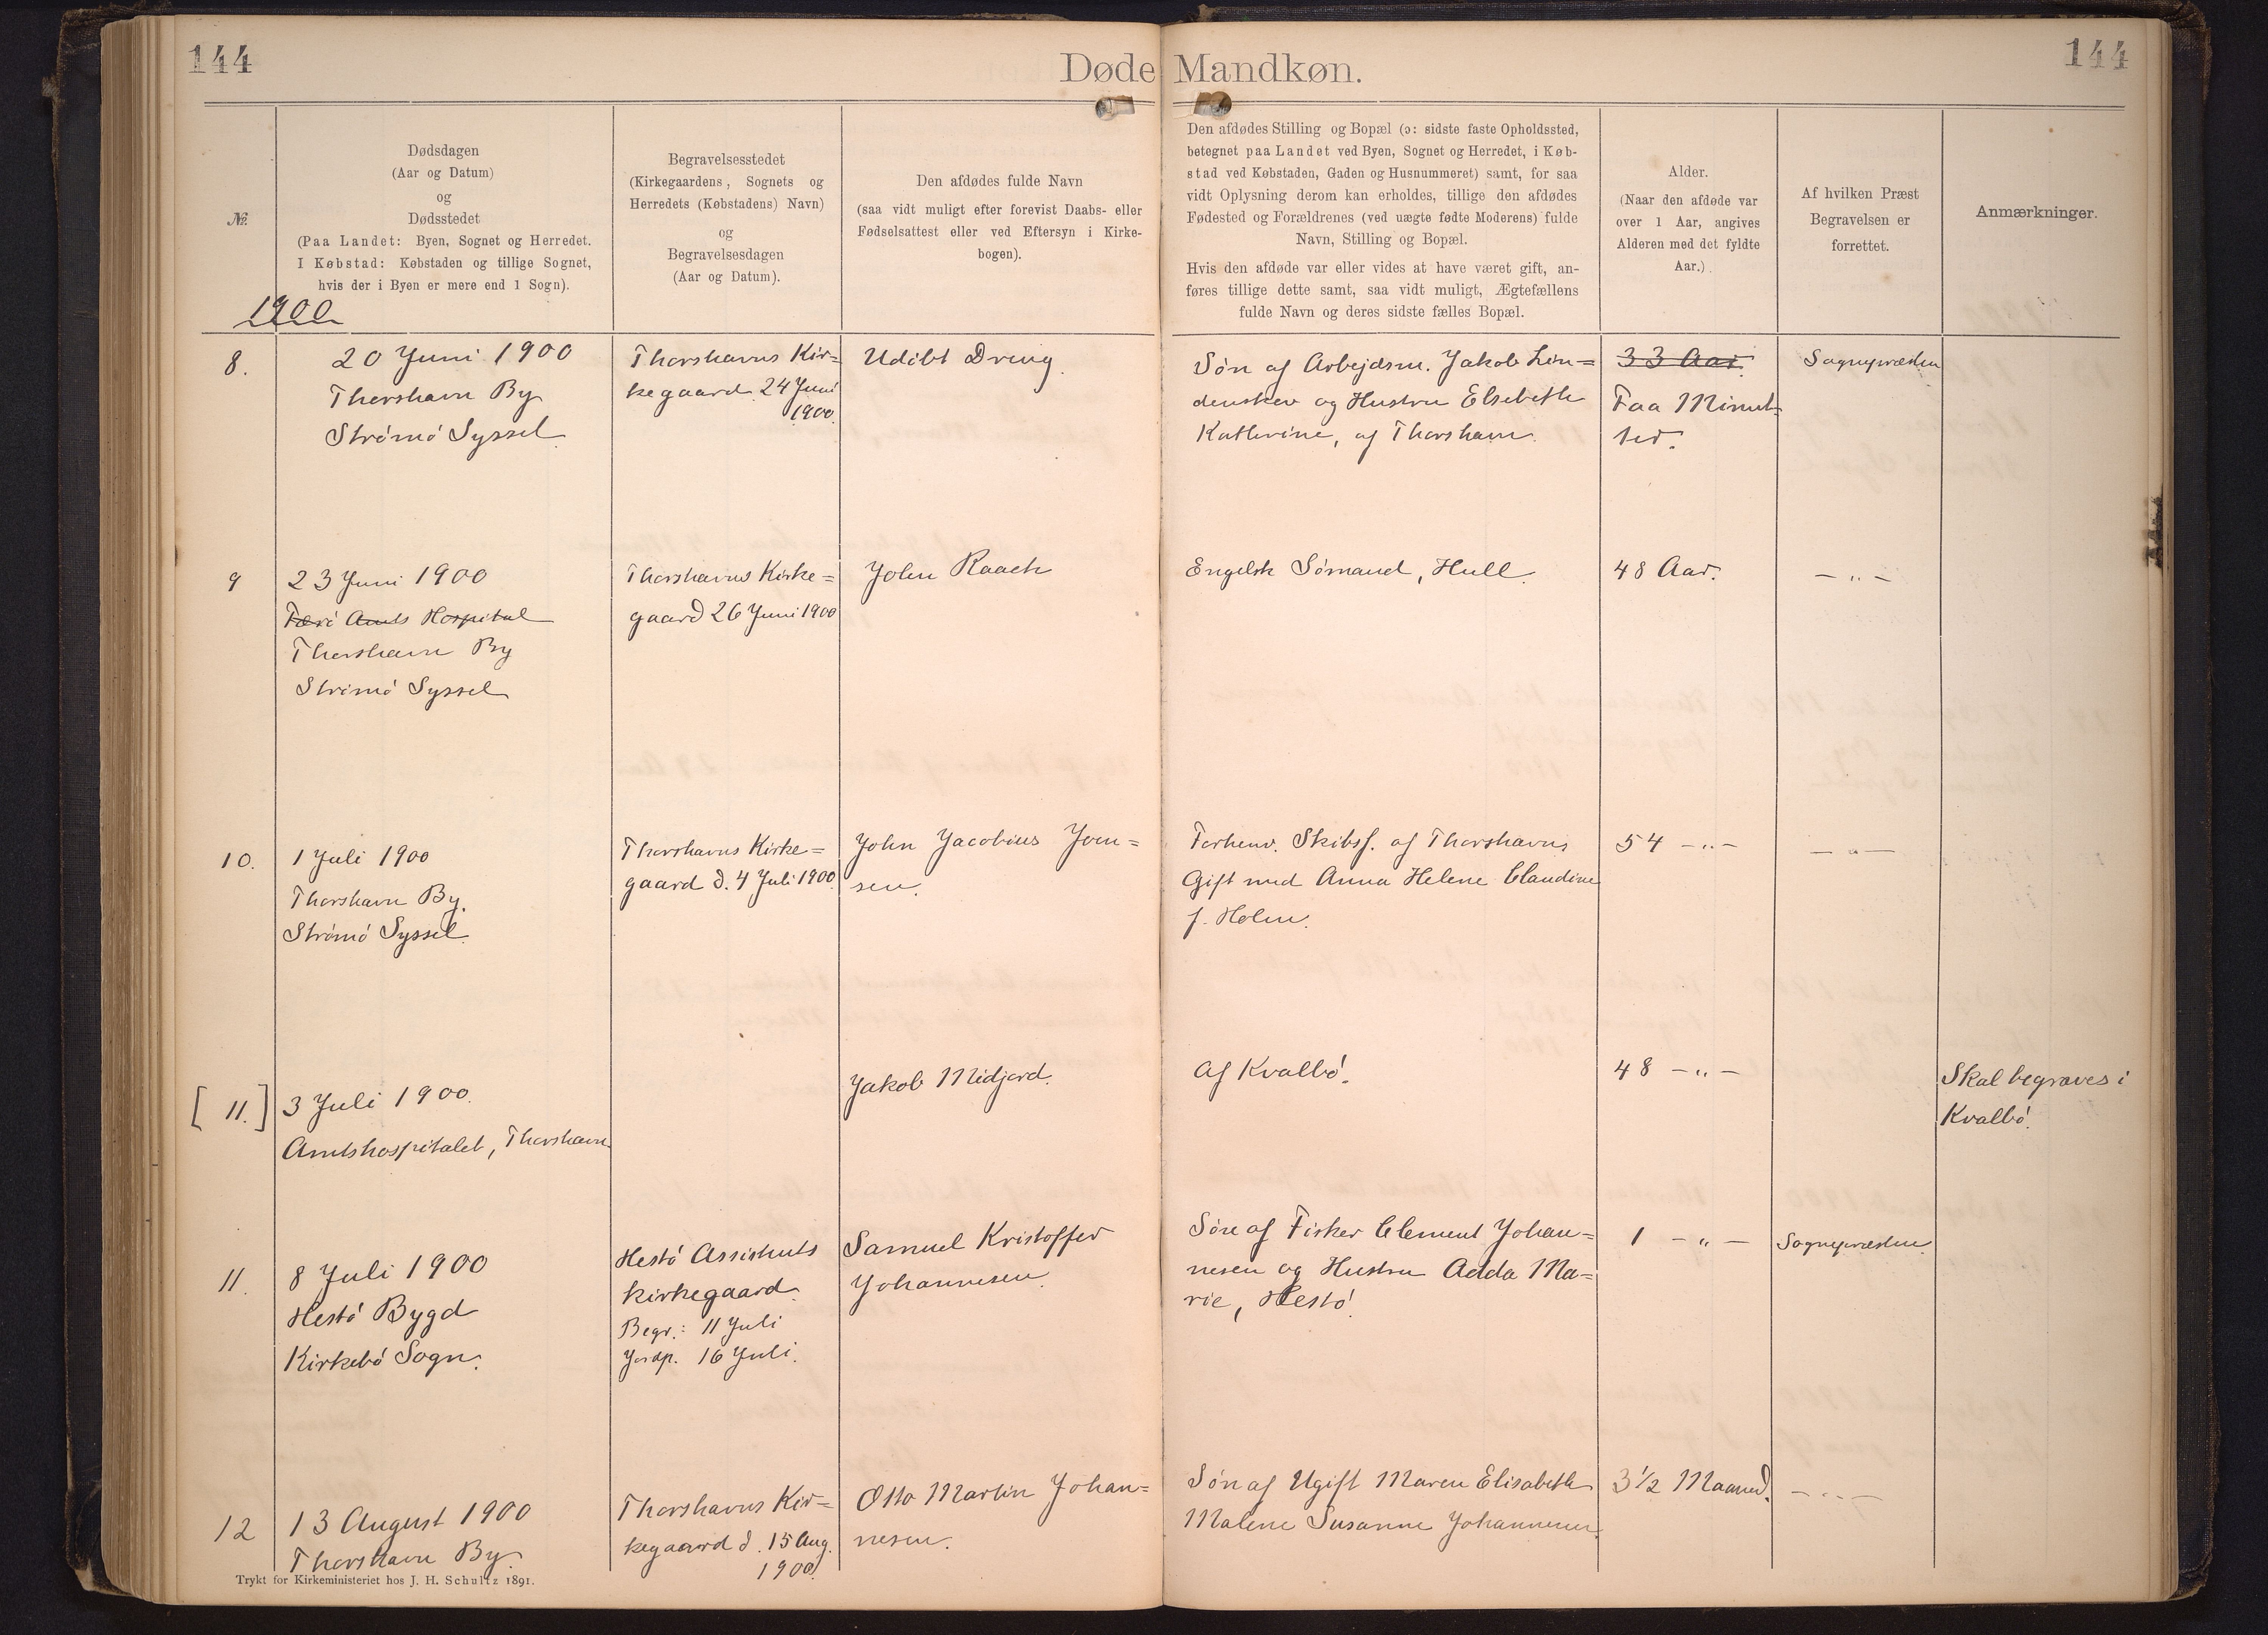 144
Døde Mandkøn.
144
№
Dødsdagen
(Aar og Datum)
og
Dødsstedet
(Paa Landet: Byen, Sognet og Herredet.
I Købstad: Købstaden og tillige Sognet,
hvis der i Byen er mere end 1 Sogn).
Begravelsesstedet
(Kirkegaardens, Sognets og
Herredets (Købstadens) Navn)
og
Begravelsesdagen
(Aar og Datum).
Den afdødes fulde Navn
(saa vidt muligt efter forevist Daabs- eller
Fødselsattest eller ved Eftersyn i Kirke-
bogen).
Den afdødes Stilling og Bopæl (ɔ: sidste faste Opholdssted,
betegnet paa Landet ved Byen, Sognet og Herredet, i Køb-
stad ved Købstaden, Gaden og Husnummeret) samt, for saa
vidt Oplysning derom kan erholdes, tillige den afdødes
Fødested og Forældrenes (ved uægte fødte Moderens) fulde
Navn, Stilling og Bopæl.
Hvis den afdøde var eller vides at have været gift, an-
føres tillige dette samt, saa vidt muligt, Ægtefællens
fulde Navn og deres sidste fælles Bopæl.
Alder.
(Naar den afdøde var
over 1 Aar, angives
Alderen med det fyldte
Aar.)
Af hvilken Præst
Begravelsen er
forrettet.
Anmærkninger.
1900
8.
20 Juni 1900
Thorshavn By
Strømö Syssel
Thorshavns Kir=
kegaard 24 Juni
1900
Udöbt Dreng.
Søn af Arbejdsm. Jakob Lin=
denskov og Hustru Elsebeth
Kathrine, af Thorshavn.
33 Aar.
Faa Minut-
ter.
Sognepræsten
9
23 Juni 1900
Færö Amts Hospital
Thorshavn By
Strömö Syssel
Thorshavns Kirke=
gaard 26 Juni 1900
John Raach
Engelsk Sömand, Hull.
48 Aar.
— „ —
10.
1 Juli 1900
Thorshavn By.
Strömö Syssel.
Thorshavns Kirke=
gaard d. 4 Juli 1900.
John Jacobius Joen=
sen.
Forhenv. Skibsf. af Thorshavn,
Gift med Anna Helene Claudine
f. Holm.
54 — „ —
— „ —
[11.]
3 Juli 1900.
Amtshospitalet, Thorshavn
Jakob Midjord.
Af Kvalbö.
48 — „ —
Skal begraves i
Kvalbö.
11.
8 Juli 1900
Hestö Bygd
Kirkebö Sogn.
Hestö Assistents
kirkegaard.
Begr.: 11 Juli
Jordp. 16 Juli.
Samuel Kristoffer
Johannesen.
Sön af Fisker Clement Johan=
nesen og Hustru Adda Ma=
rie, Hestö.
1 — „ —
Sognepræsten.
12
13 August 1900
Thorshavn By.
Thorshavns Kir=
kegaard d. 15 Aug.
1900.
Otto Martin Johan=
nesen.
Sön af Ugift Maren Elisabeth
Malene Susanne Johannesen.
3 1/2 Maaned.
— „ —
Trykt for Kirkeministeriet hos J. H. Schultz 1891.